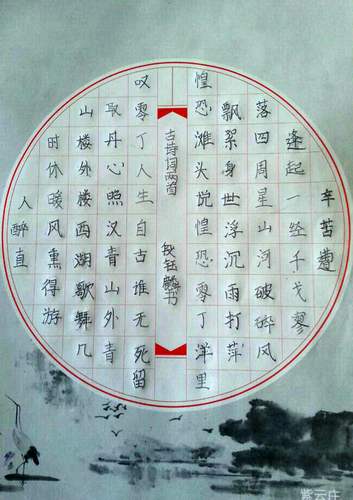 辛苦遭
逢起一经千戈寥
落四周星山河破碎风
飘絮身世浮沉雨打萍
惶恐滩头说惶恐零丁洋里
古诗词两首
书
叹零丁人生自古谁无死留
取丹心照汉青山外青
山楼外楼西湖歌舞几
时休暖风熏得游
人醉直
紫云庄